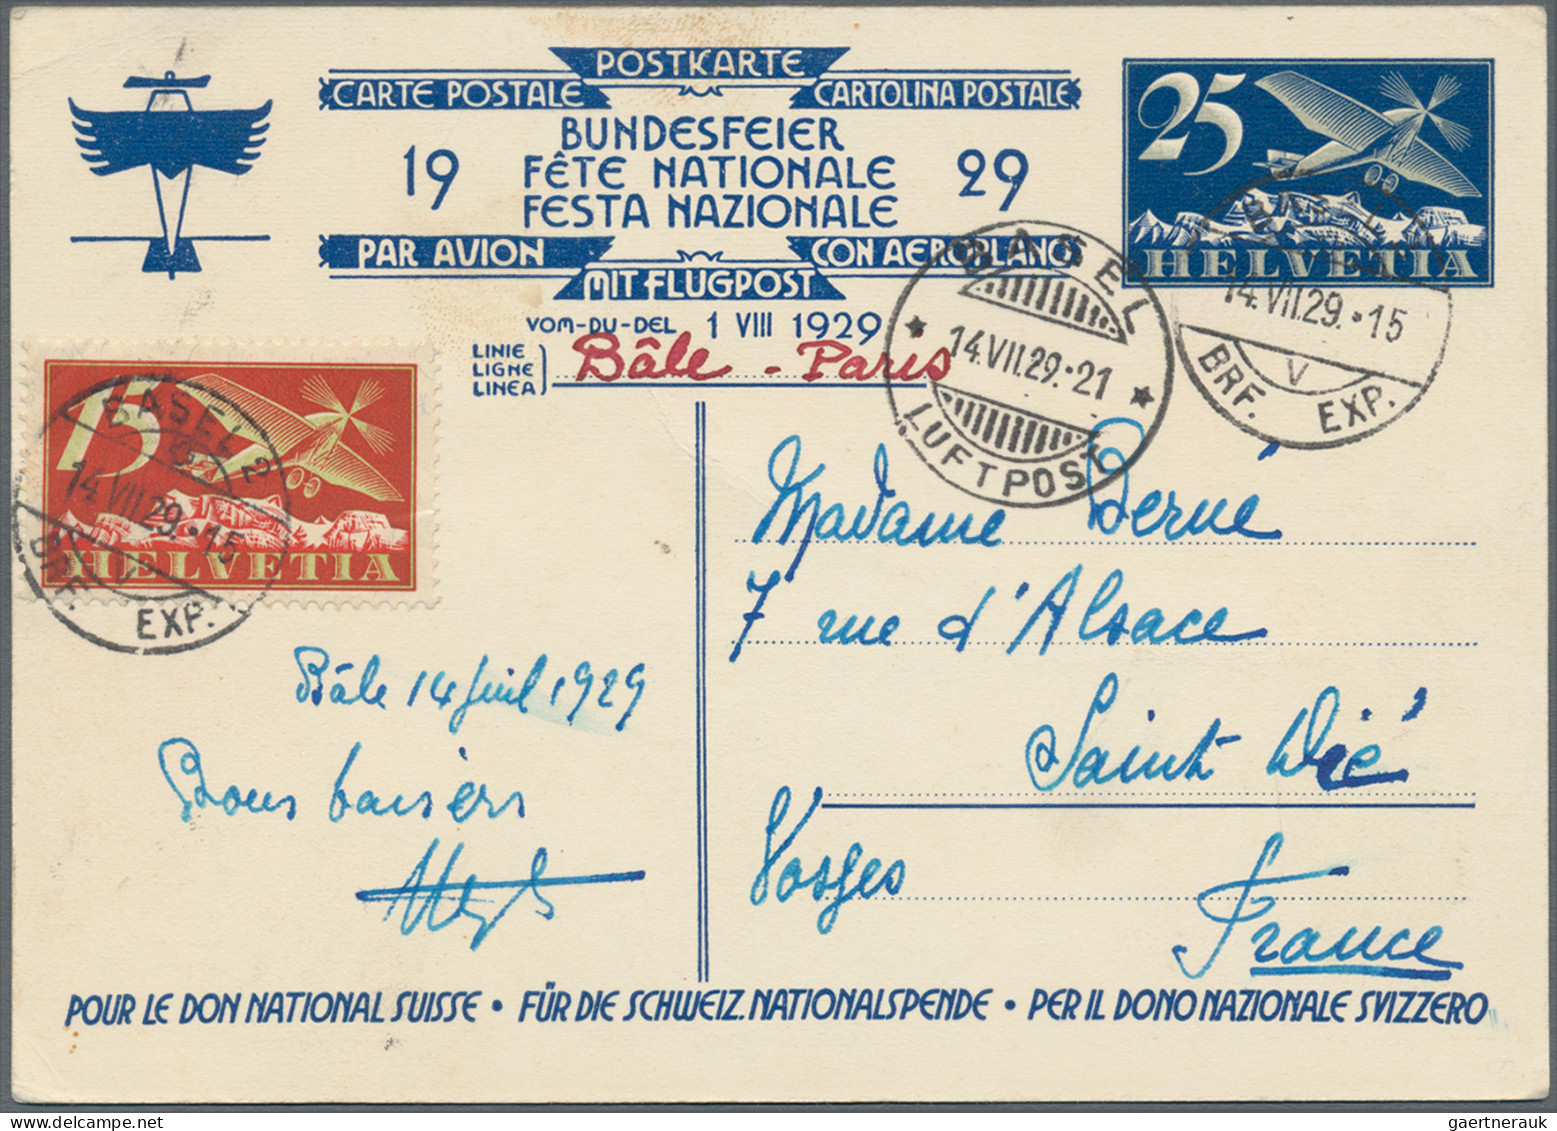 POSTKARTE
CARTE POSTALE
CARTOLINA POSTALE
BUNDESFEIER
19 FÊTE NATIONALE 29
FESTA NAZIONALE
PAR AVION
CON AEROPLANO
MIT FLUGPOST
VOM-DU-DEL 1 VIII 1929
LINIE
LIGNE
LINEA
Bâle - Paris
25
HELVETIA
BASEL
14.VII.29.•21
LUFTPOST
14.VII.29.•15
BRF. V EXP.
15
HELVETIA
BASEL 2
14.VII.29.•15
BRF. V EXP.
Madame
7 rue d'Alsace
Saint Dié
Vosges
France
Bâle 14 Juil 1929
Bons baisers
POUR LE DON NATIONAL SUISSE • FÜR DIE SCHWEIZ. NATIONALSPENDE • PER IL DONO NAZIONALE SVIZZERO
gaertnerauk